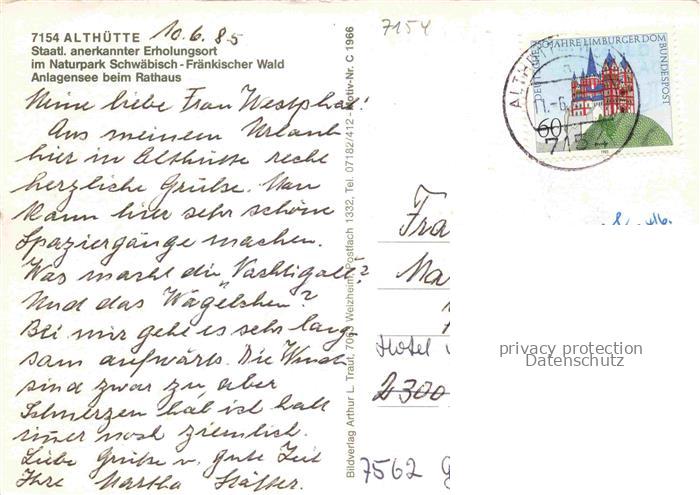 7154 ALTHÜTTE 10.6.85
Staatl. anerkannter Erholungsort
im Naturpark Schwäbisch-Fränkischer Wald
Anlagensee beim Rathaus
Meine liebe Frau Westphal!
Aus meinem Urlaub
hier in Althütte recht
herzliche Grüße. Man
kann hier sehr schöne
Spaziergänge machen.
Was macht die Nachtigall?
Und das Wägelchen?
Bei mir geht es sehr lang
sam aufwärts. Die Wunden
sind zwar zu, aber
Schmerzen hab ich halt
immer noch ziemlich.
Liebe Grüße u. gute Zeit
Ihre Martha
Bildverlag Arthur L. Traut, 7063 Welzheim, Postfach 1332, Tel. 07182/412 - Motiv-Nr. C 1966
7154
750 JAHRE LIMBURGER DOM
DEUTSCHE BUNDESPOST
60
1985
ALTHÜTTE
11.-6.
7154
Fra
Ma
Hotel
2300
7562 G
privacy protection
Datenschutz